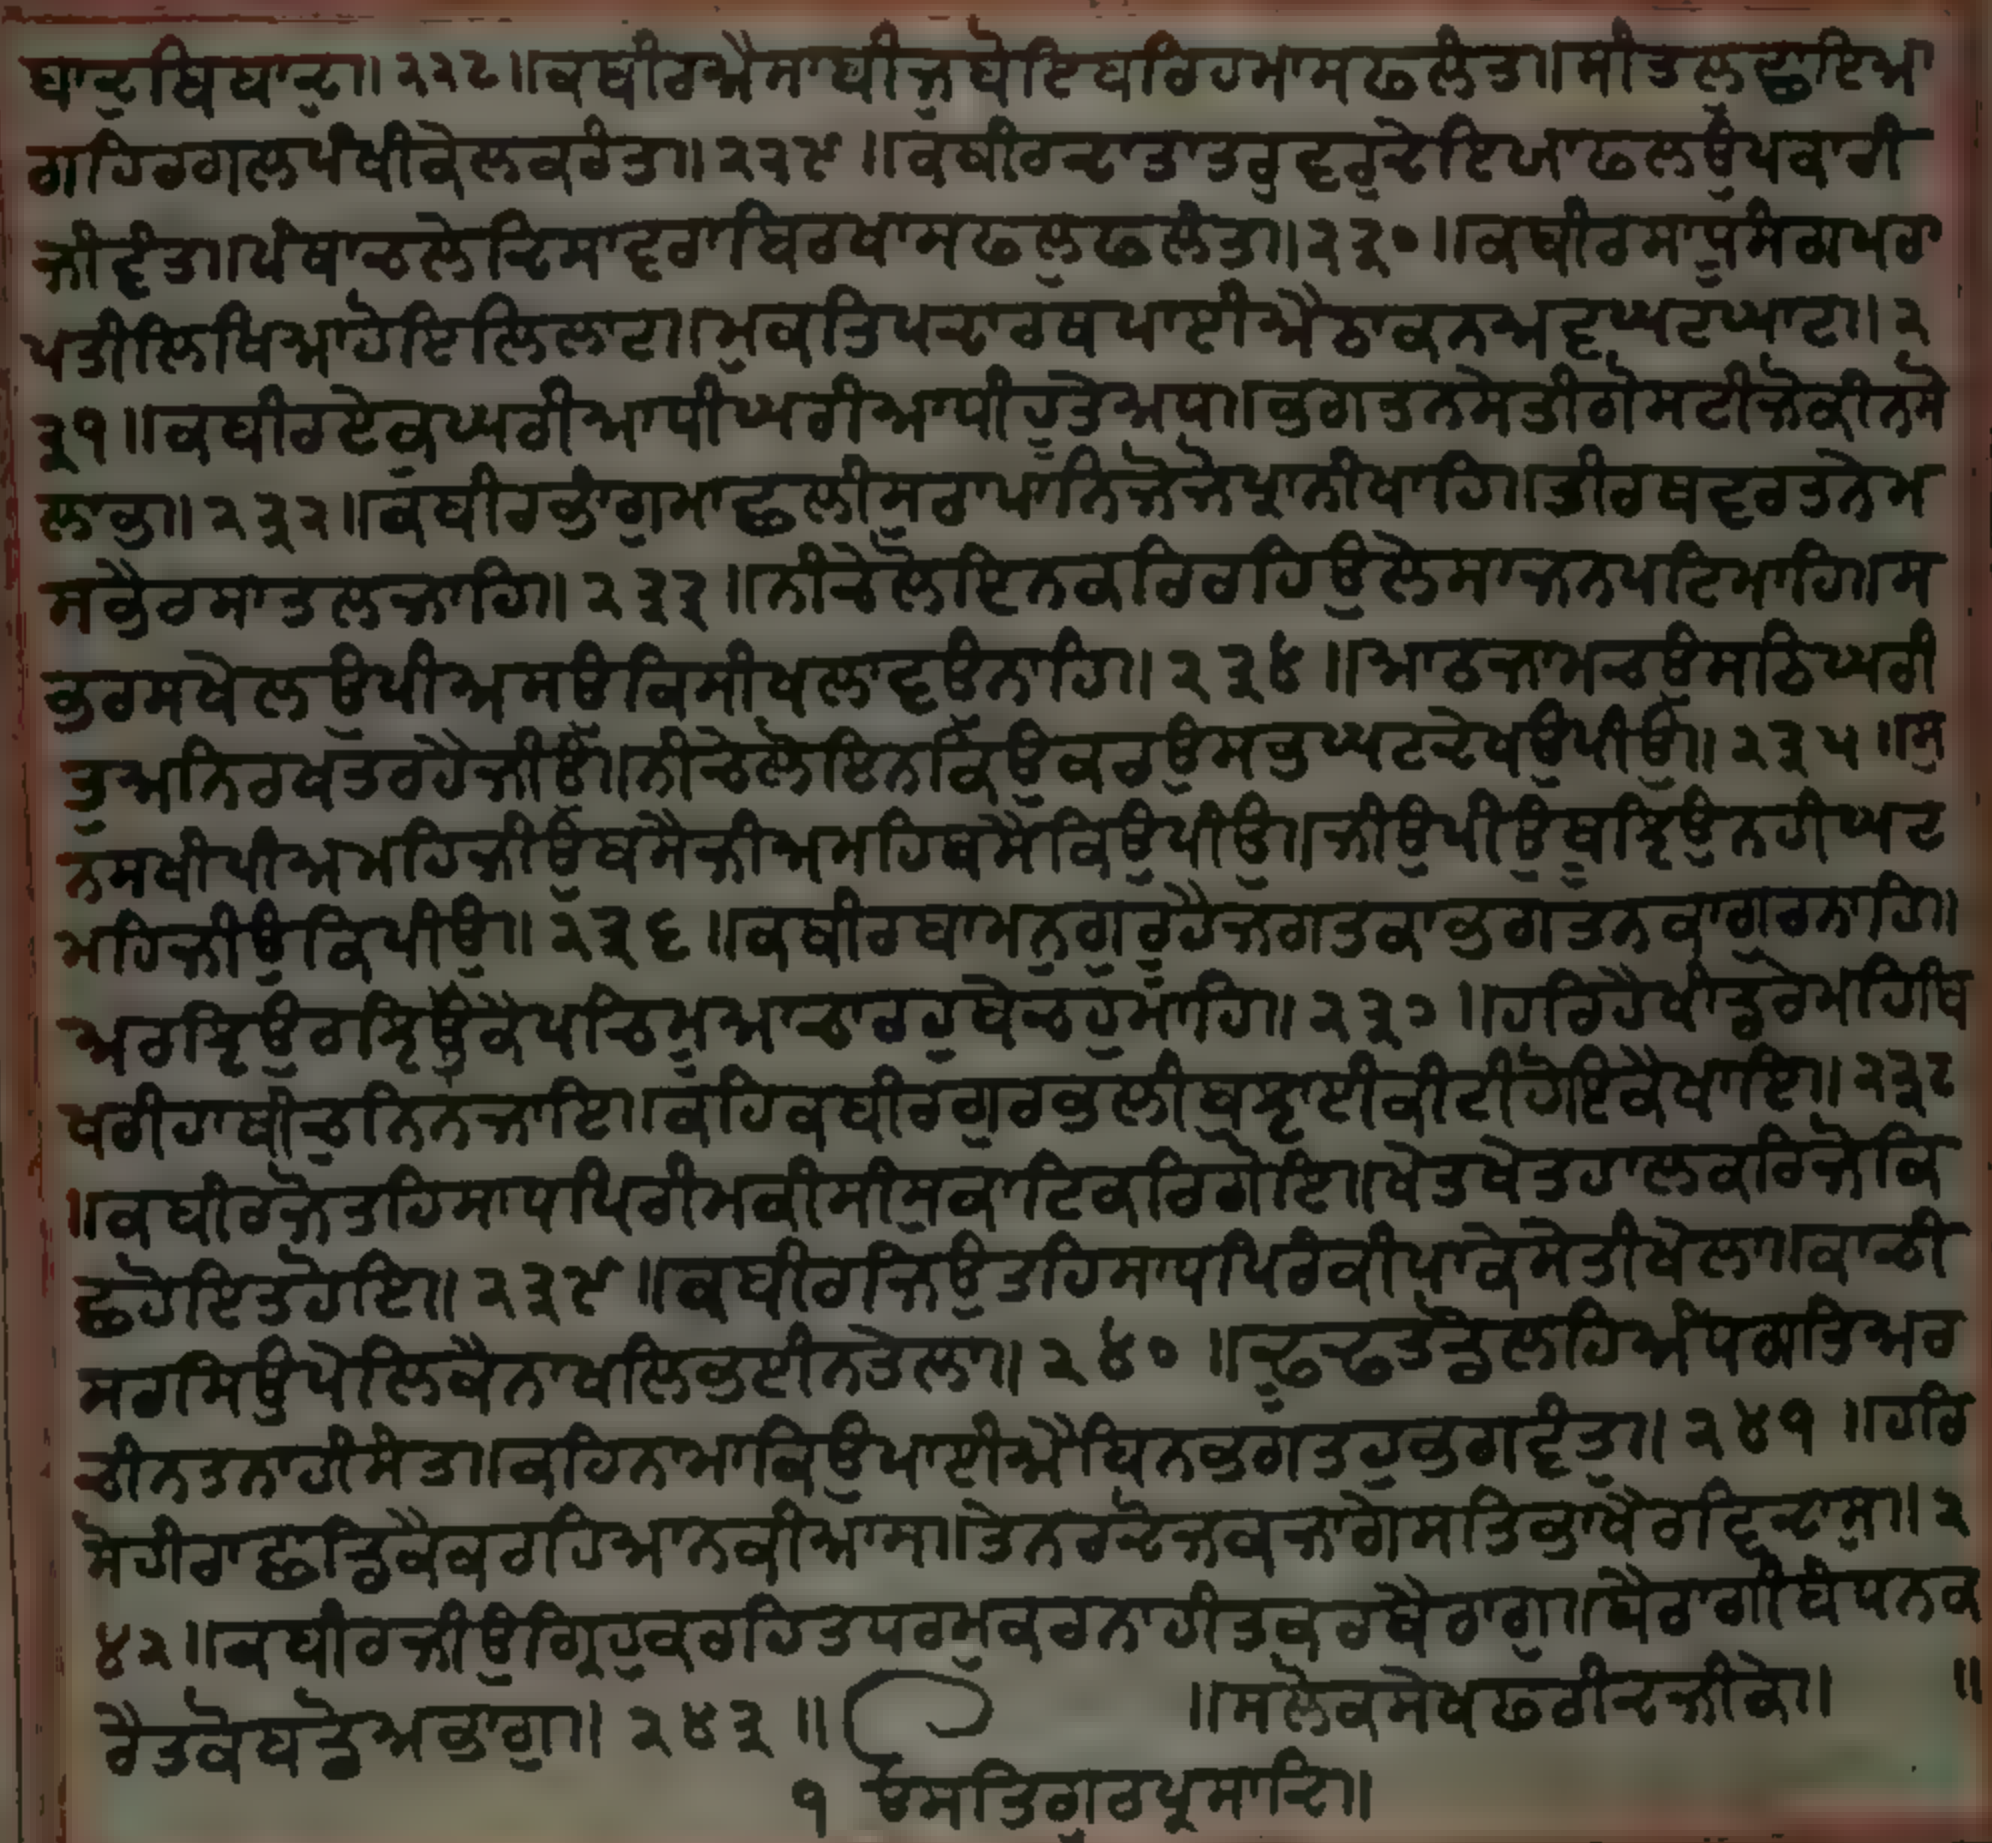 ਬਾਦੁਬਿਬਾਦੁ॥੨੨੮॥ਕਬੀਰਐਸਾਬੀਜੁਬੋਇਬਾਰਿਹਮਾਸਫਲੰਤ॥ਸੀਤਲਛਾਇਆ
ਗਹਿਰਗਲਪੰਖੀਕੇਲਕਰੰਤ॥੨੨੯॥ਕਬੀਰਦਾਤਾਤਰੁਵਰੁਦੇਇਆਫਲਉੁਪਕਾਰੀ
ਜੀਵੰਤ॥ਪੰਖਾਚਲੇਦਿਸਾਵਰਾਬਿਰਖਾਸਫਲੁਫਲੰਤ॥੨੩੦॥ਕਬੀਰਸਾਧੂਸੰਗਪਰਾ
ਪਤੀਲਿਖਿਆਹੋਇਲਿਲਾਟ॥ਮੁਕਤਿਪਦਾਰਥਪਾਈਐਠਾਕਨਅਵਘਟਘਾਟ॥੨
੩੧॥ਕਬੀਰਏਕੁਘਰੀਆਧੀਘਰੀਆਧੀਹੁਤੇਅਧ॥ਭਗਤਨਸੇਤੀਗੋਸਟੀਜੋਕੀਨਸੋ
ਲਾਭ॥੨੩੨॥ਕਬੀਰਭਾਂਗੁਮਾਛੁਲੀਸੁਰਾਪਾਨਿਜੋਜੋਪ੍ਰਾਨੀਖਾਹਿ॥ਤੀਰਥਵਰਤਨੇਮ
ਸਭੈਰਸਾਤਲਜਾਹਿ॥੨੩੩॥ਨੀਚੇਲੋਇਨਕਰਿਰਹਿਉੁਲੇਸਾਜਨਘਟਿਮਾਹਿ॥ਸ
ਭਰਸਖੇਲਉੁਪੀਅਸਉਕਿਸੀਖਲਾਵਉਨਾਹਿ॥੨੩੪॥ਆਠਜਾਮਚਉਸਠਿਘਰੀ
ਤੁਅਨਿਰਖਤਰਹੈਜੀਉ॥ਨੀਚੇਲੋਇਨਕਿਉੁਕਰਉੁਸਭਘਟਦੇਖਉੁਪੀਉੁ॥੨੩੫॥ਸੁ
ਨਸਖੀਪੀਅਮਹਿਜੀਉੁਬਸੈਜੀਅਮਹਿਬਸੈਕਿਉੁਪੀਉੁ॥ਜੀਉੁਪੀਉੁਬੂਝਉੁਨਹੀਘਟ
ਮਹਿਜੀਉੁਕਿਪੀਉੁ॥੨੩੬॥ਕਬੀਰਬਾਮਨੁਗੁਰੂਹੈਜਗਤਕਾਭਗਤਨਕਾਗੁਰਨਾਹਿ॥
ਅਰਝਿਉੁਰਝਿਉੁਕੈਪਚਿਮੂਆਚਾਰਹੁਬੇਦਹੁਮਾਹਿ॥੨੩੭॥ਹਰਿਹੈਖਾਂਡੁਰੇਮਹਿਬਿ
ਖਰੀਹਾਥੀਚੁਨਿਨਜਾਇ॥ਕਹਿਕਬੀਰਗੁਰਭਲੀਬੁਝਾਈਕੀਟੀਹੋਇਕੈਖਾਇ॥੨੩੮
॥ਕਬੀਰਜੋਤਹਿਸਾਧਪਿਰੀਮਕੀਸੀਸੁਕਾਟਿਕਰਿਗੋਇ॥ਖੇਤਖੇਤਹਾਲਕਰਿਜੋਕਿ
ਛੁਹੋਇਤਹੋਇ॥੨੩੯॥ਕਬੀਰਜਿਉੁਤਹਿਸਾਧਪਿਰੰਕੀਪਾਕੇਸੇਤੀਖੇਲ॥ਕਾਚੀ
ਸਰਸਿਉੁਪੇਲਿਕੈਨਾਖਲਿਭਈਨਤੇਲ॥੨੪੦॥ਢੂਢਤਡੋਲਹਿਅੰਧਗਤਿਅਰ
ਚੀਨਤਨਾਹੀਸੰਤ॥ਕਹਿਨਾਮਾਕਿਉੁਪਾਈਐਬਿਨਭਗਤਹੁਭਗਵੰਤੁ॥੨੪੧॥ਹਰਿ
ਸੋਹੀਰਾਛਾਡਿਕੈਕਰਹਿਆਨਕੀਆਸ॥ਤੇਨਰਦੋਜਕਜਾਗੇਸਤਿਭਾਖੈਰਵਿਦਾਸੁ॥੨
੪੨॥ਕਬੀਰਜੀਉੁਗ੍ਰਿਹੁਕਰਹਿਤਧਰਮੁਕਰਨਾਹੀਤਕਰਬੈਰਾਗੁ॥ਬੈਰਾਗੀਬੰਧਨਕ
ਰੈਤਕੋਬਡੋਅਭਾਗੁ॥੨੪੩॥ ॥ਸਲੋਕਸੇਖਫਰੀਦਜੀਕੇ॥ ॥
੧ਓਸਤਿਗੁਰਪ੍ਰਸਾਦਿ॥